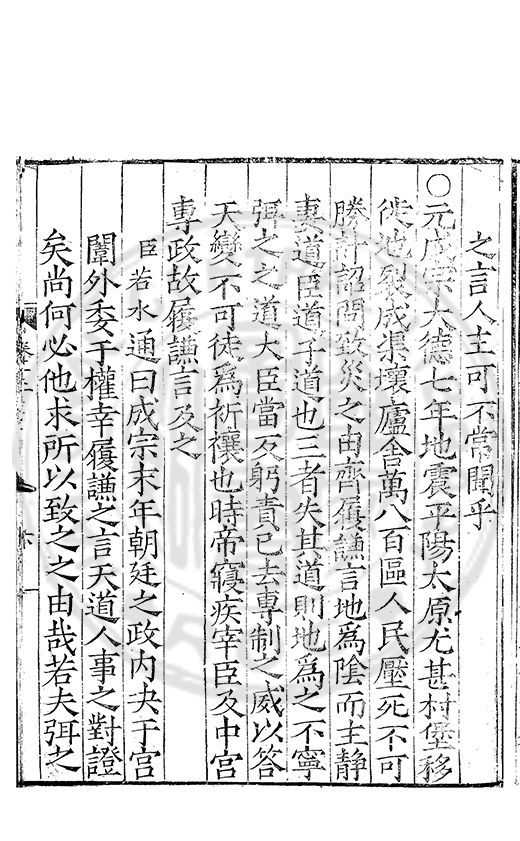 之言人主可不常聞乎
○元成宗大德七年地震平陽太原尤甚村堡移
徙地裂成渠壞廬舍萬八百區人民壓死不可
勝計詔問致災之由齊履謙言地爲陰而主靜
妻道臣道子道也三者失其道則地爲之不寧
弭之之道大臣當反躬責己去專制之威以答
天變不可徒爲祈禳也時帝寢疾宰臣及中宮
專政故履謙言及之
臣若水通曰成宗末年朝廷之政內决于宮
闈外委于權幸履謙之言天道人事之對證
矣尚何必他求所以致之之由哉若夫弭之